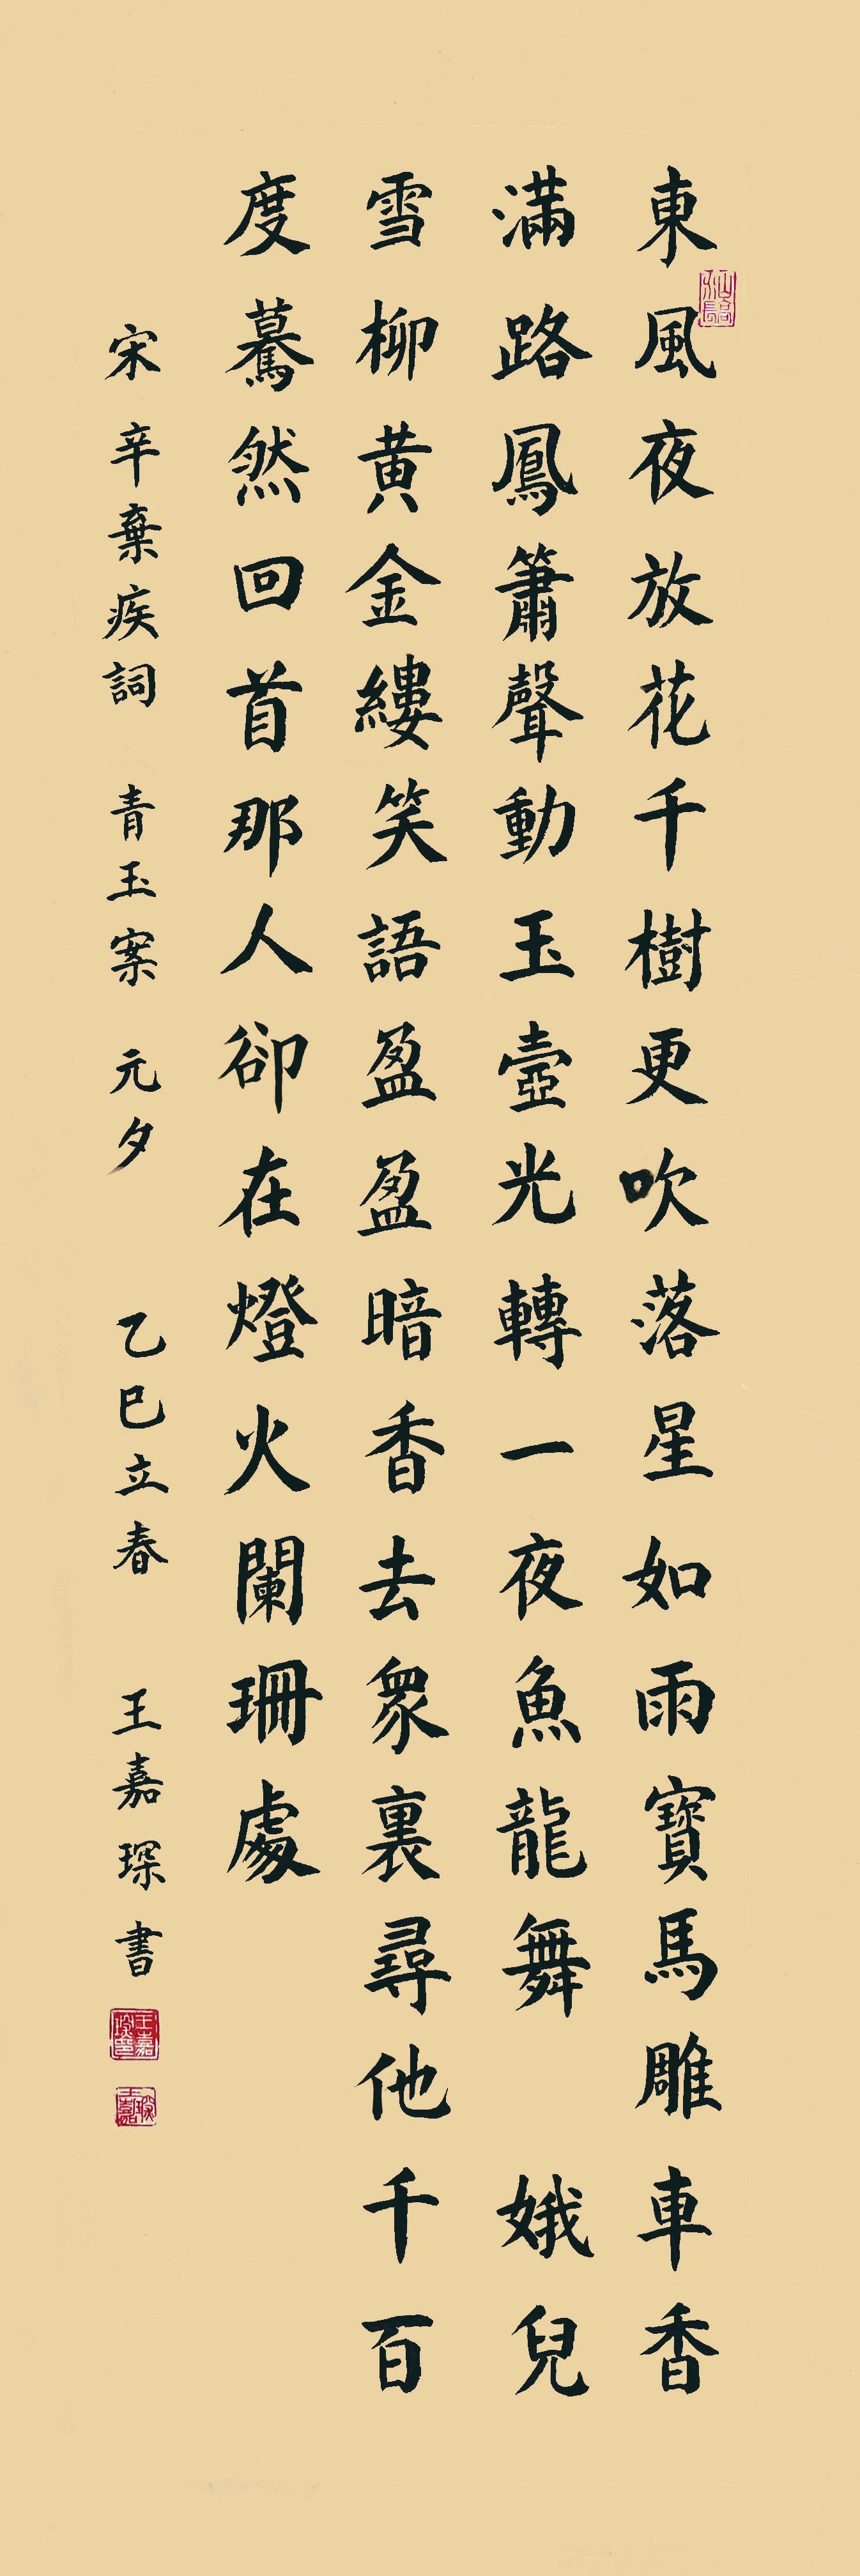 東風夜放花千樹更吹落星如雨寶馬雕車香
滿路鳳簫聲動玉壺光轉一夜魚龍舞 娥兒
雪柳黃金縷笑語盈盈暗香去眾裏尋他千百
度驀然回首那人卻在燈火闌珊處
宋辛棄疾詞 青玉案 元夕 乙巳立春 王嘉琛書